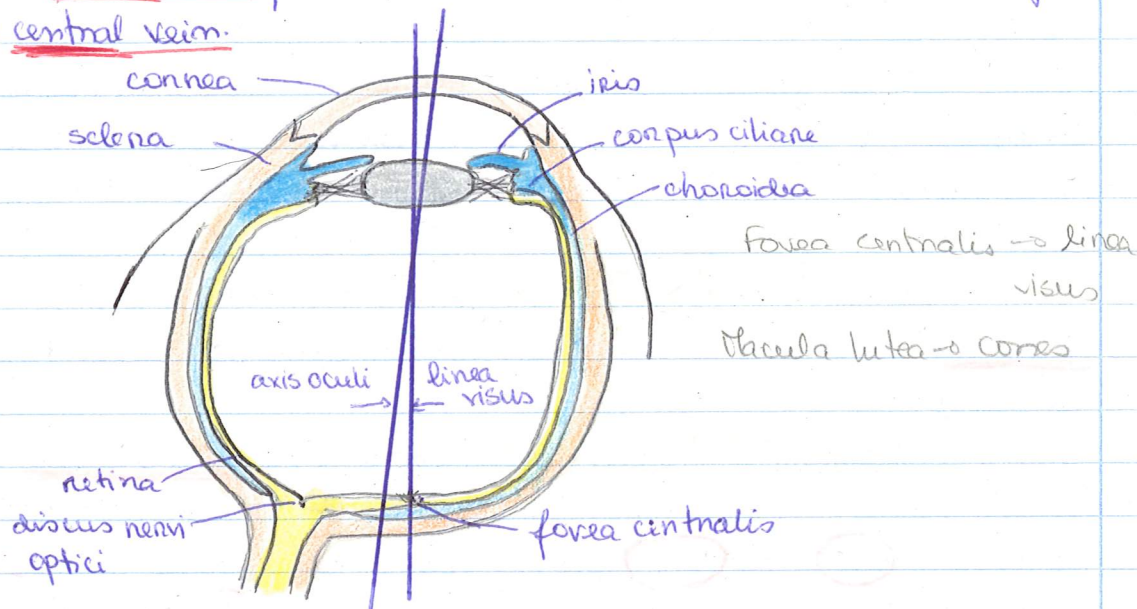 central vein.
cornea
iris
sclera
corpus ciliare
choroidea
Fovea centralis → linea
visus
Macula lutea → cones
axis oculi
linea
visus
retina
discus nervi
optici
fovea centralis